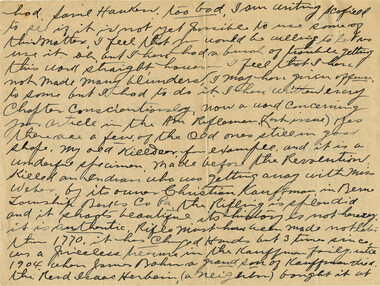 had, Saml Hawken. too bad, I am writing Kofied
to see if it is not just possible to use some of
this matter, I feel that you would be willing to
but I have had a bunch of trouble getting
this word straight however. I feel that I have
not made many blunders. I may have given offence
to some but I had to do it I have written every
Chapter Conscientiously now a word concerning
your article in the Am. Rifleman (Got mine) Yes
there are a few of the old ones still in good
shape. My old Killdeer for example, and it is a
wonderful specimen. made before the Revolution.
Killed an Indian who was getting away with Miss
by its owner Christian Kauffman in Bern
Township Berks Co Pa, the Rifling is splendid
and it shoots beautiful its history is not hearsay
it is authentic, Rifle must have been made not later
than 1770, it has Changed Hands but 3 times since
was a priceless heirloom in the Kauffman family until
1904 when James a grandson of Kauffman died
the Reverend Isaac Herbein, (a neighbor) bought it at